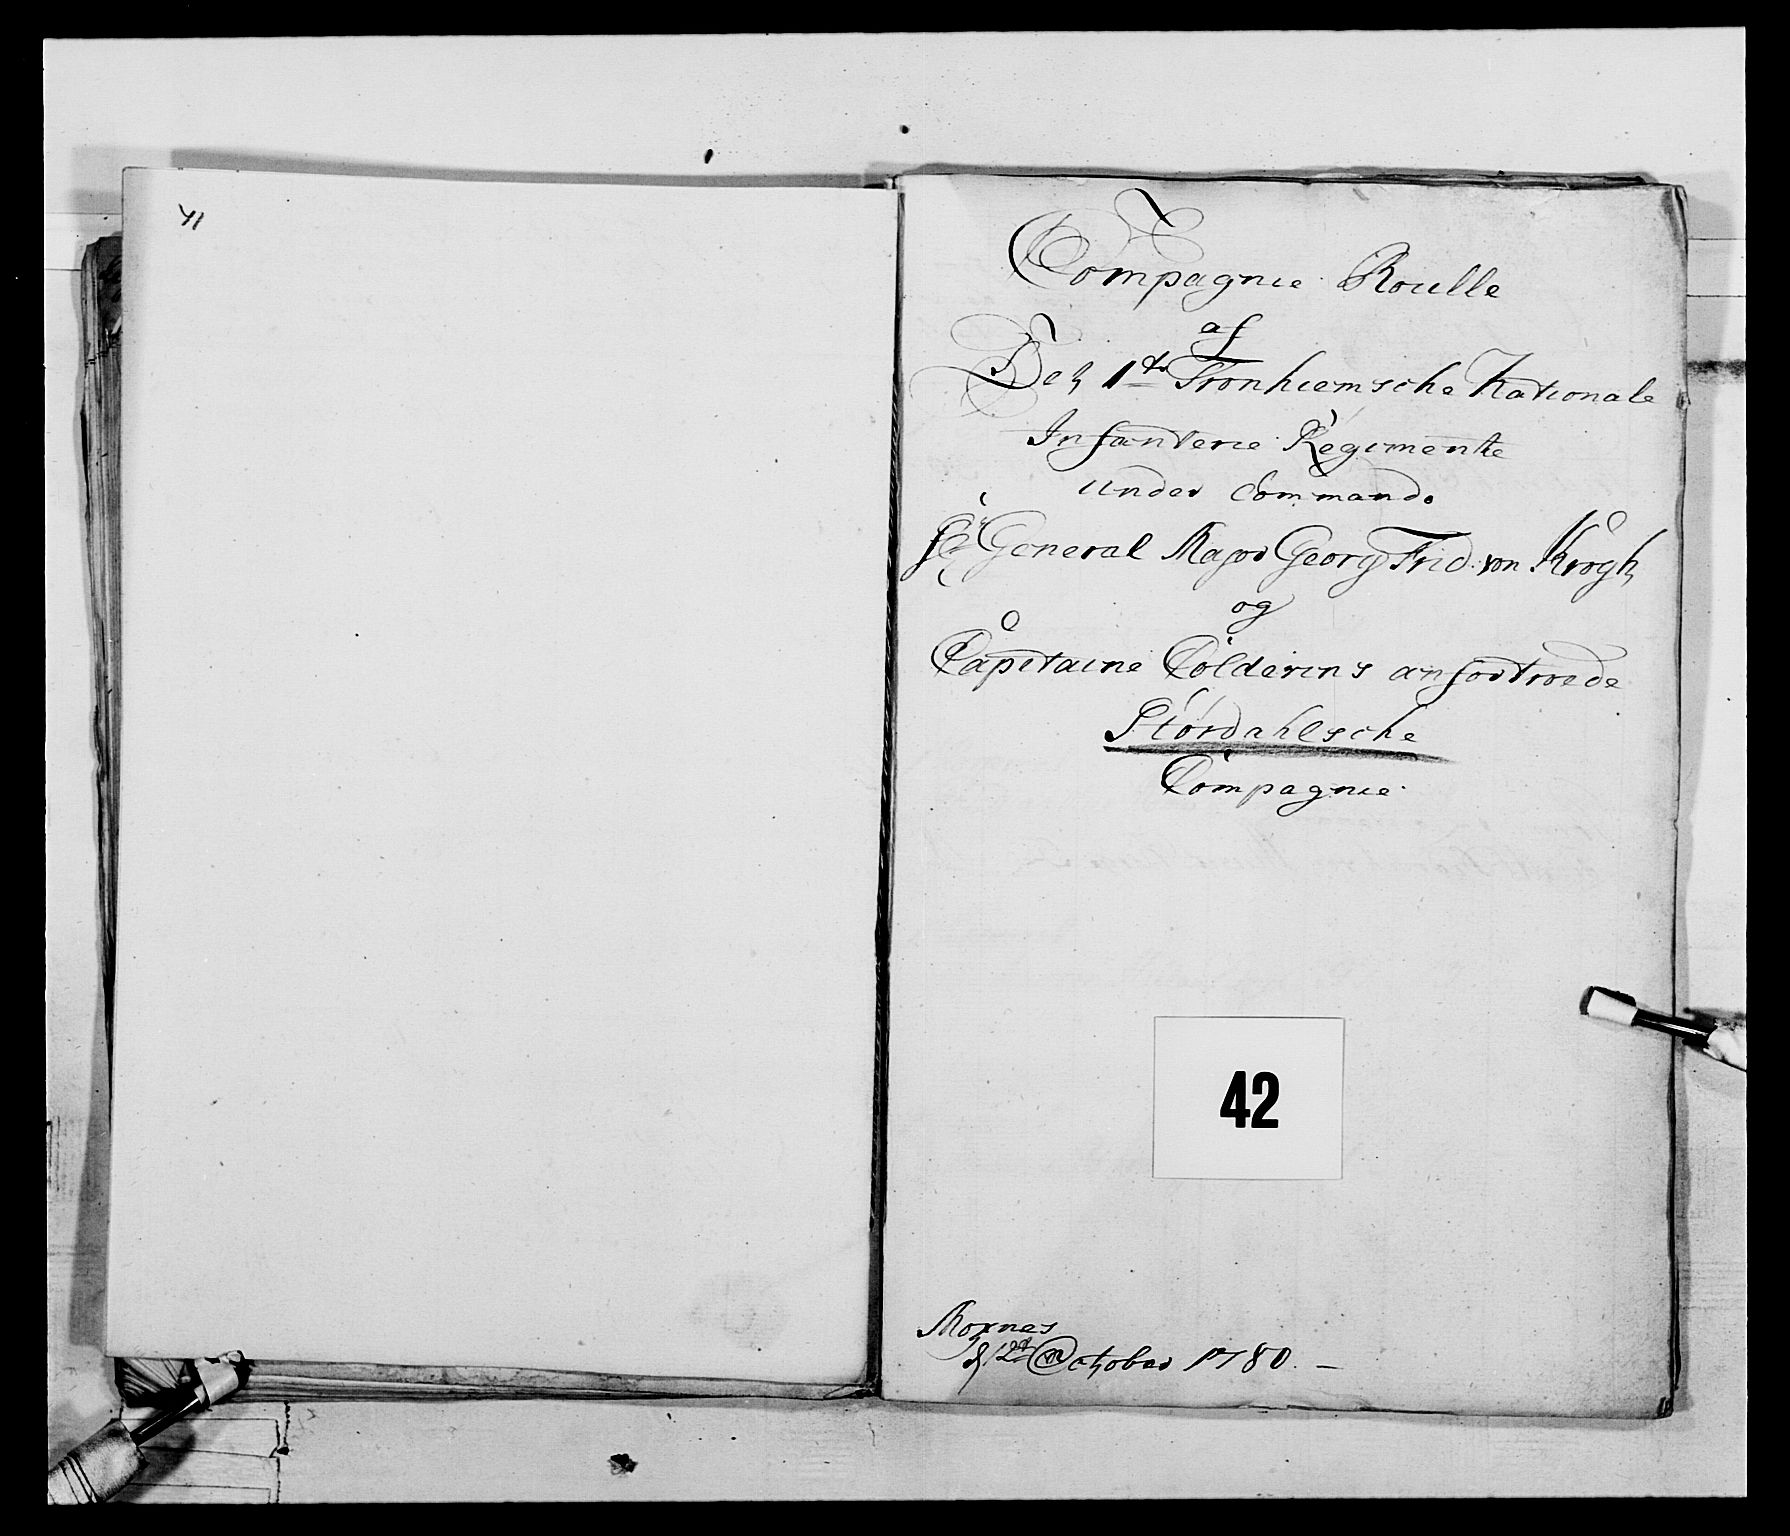 41
Compagnie Roulle
af
Det 1te Tronhiemsche Nationale
Infanterie Regimente
under Commando
General Major Georg Frid. von Krogh
og
Capitaine Coldevins anfortroede
Stördahlsche
Compagnie
42
Moxnes
d 12t October 1780. –